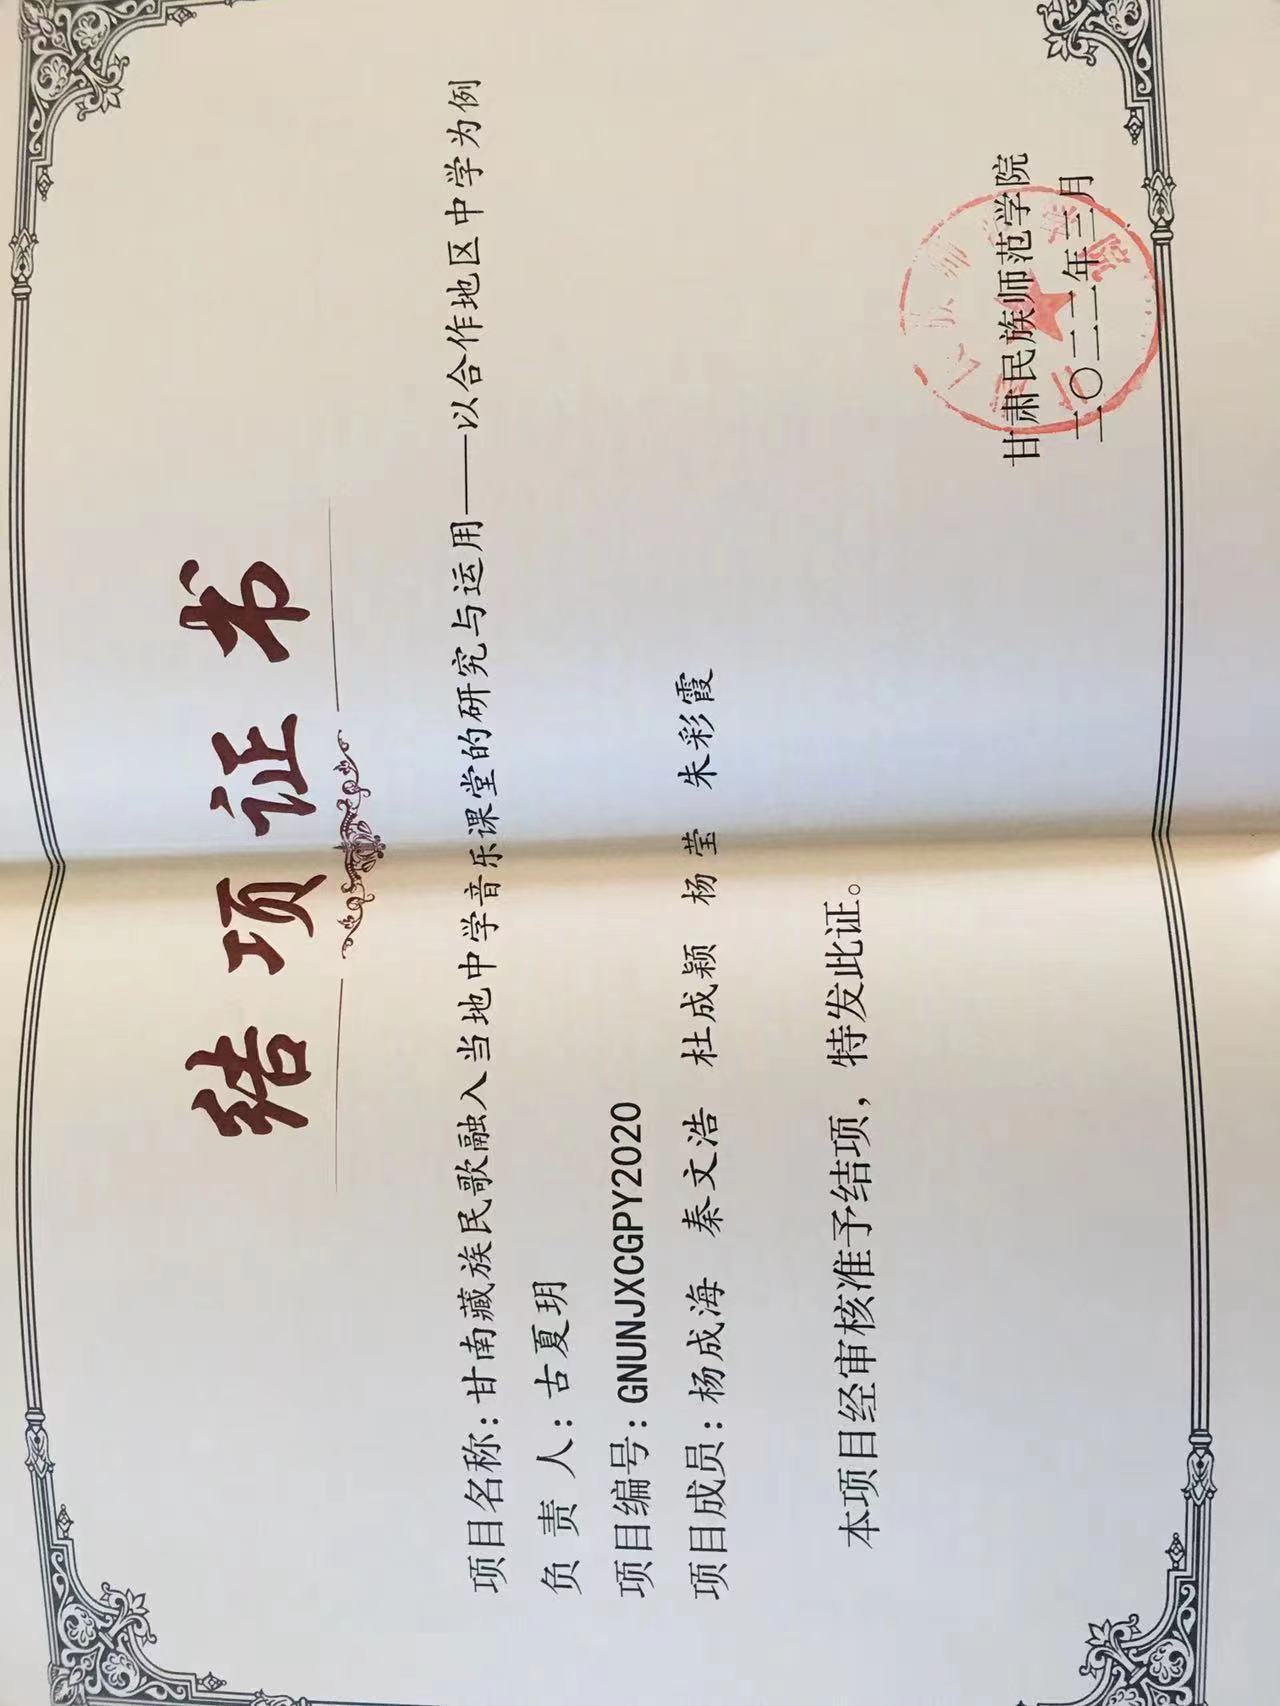 结项证书
项目名称：甘南藏族民歌融入当地中学音乐课堂的研究与运用——以合作地区中学为例
负责人：古夏玥
项目编号：GNUNJXCGPY2020
项目成员：杨成海 秦文浩 杜成颖 杨莹 朱彩霞
本项目经审核准予结项，特发此证。
甘肃民族师范学院
二〇二二年三月